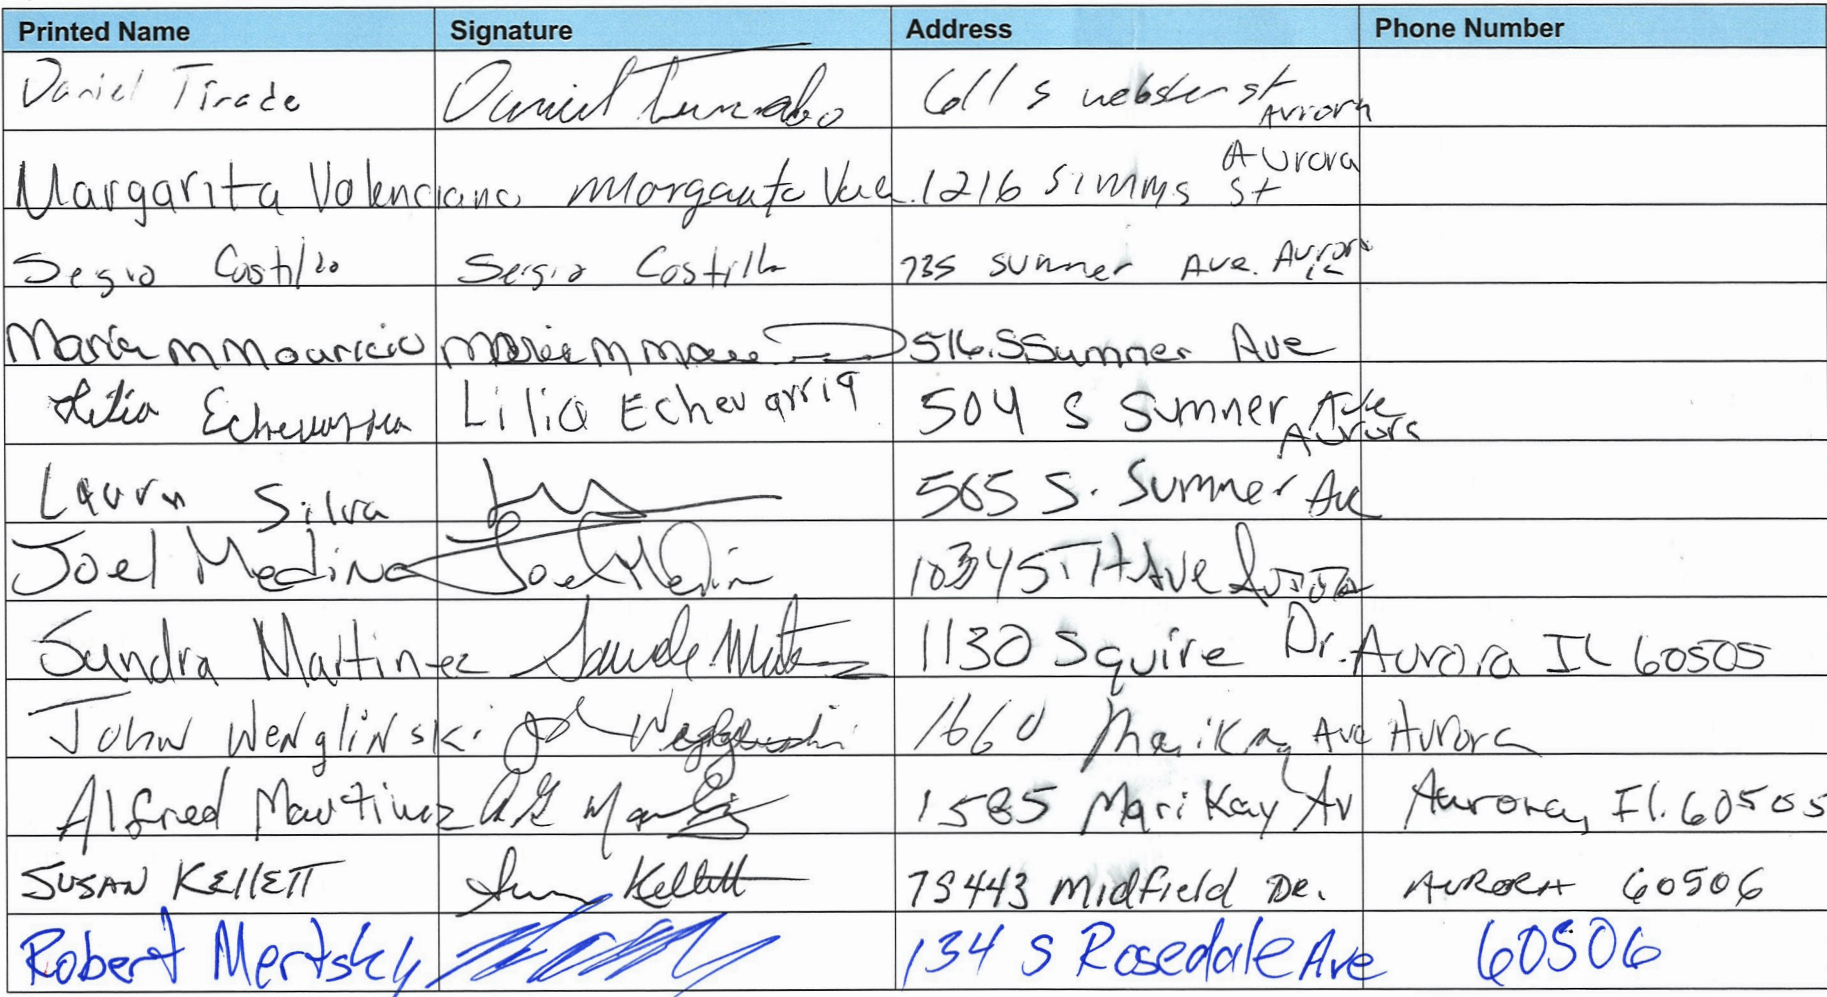 Printed Name Signature Address Phone Number
Daniel Tirade Daniel 611 s webster st Aurora
Margarita Valenciano Margarita 1216 Simms St Aurora
Segio Castillo Sergio Costilla 735 sumner Ave. Aurora IL
Maria M Mauricio Maria M 516 S Sumner Ave
Lilia Echevarria Lilia Echevarria 504 S Sumner Ave Aurora
Laura Silva 565 S. Sumner Ave
Joel Medina Joel Medin Ave Aurora
Sandra Martinez 1130 Squire Dr. Aurora IL 60505
John Wenglinski 1660 Marikay Ave Aurora
Alfred Martinez 1585 Mari Kay Av Aurora, Il. 60505
SUSAN KELLETT Kellett Midfield DR. AURORA 60506
Robert Mertsky 134 S Rosedale Ave 60506